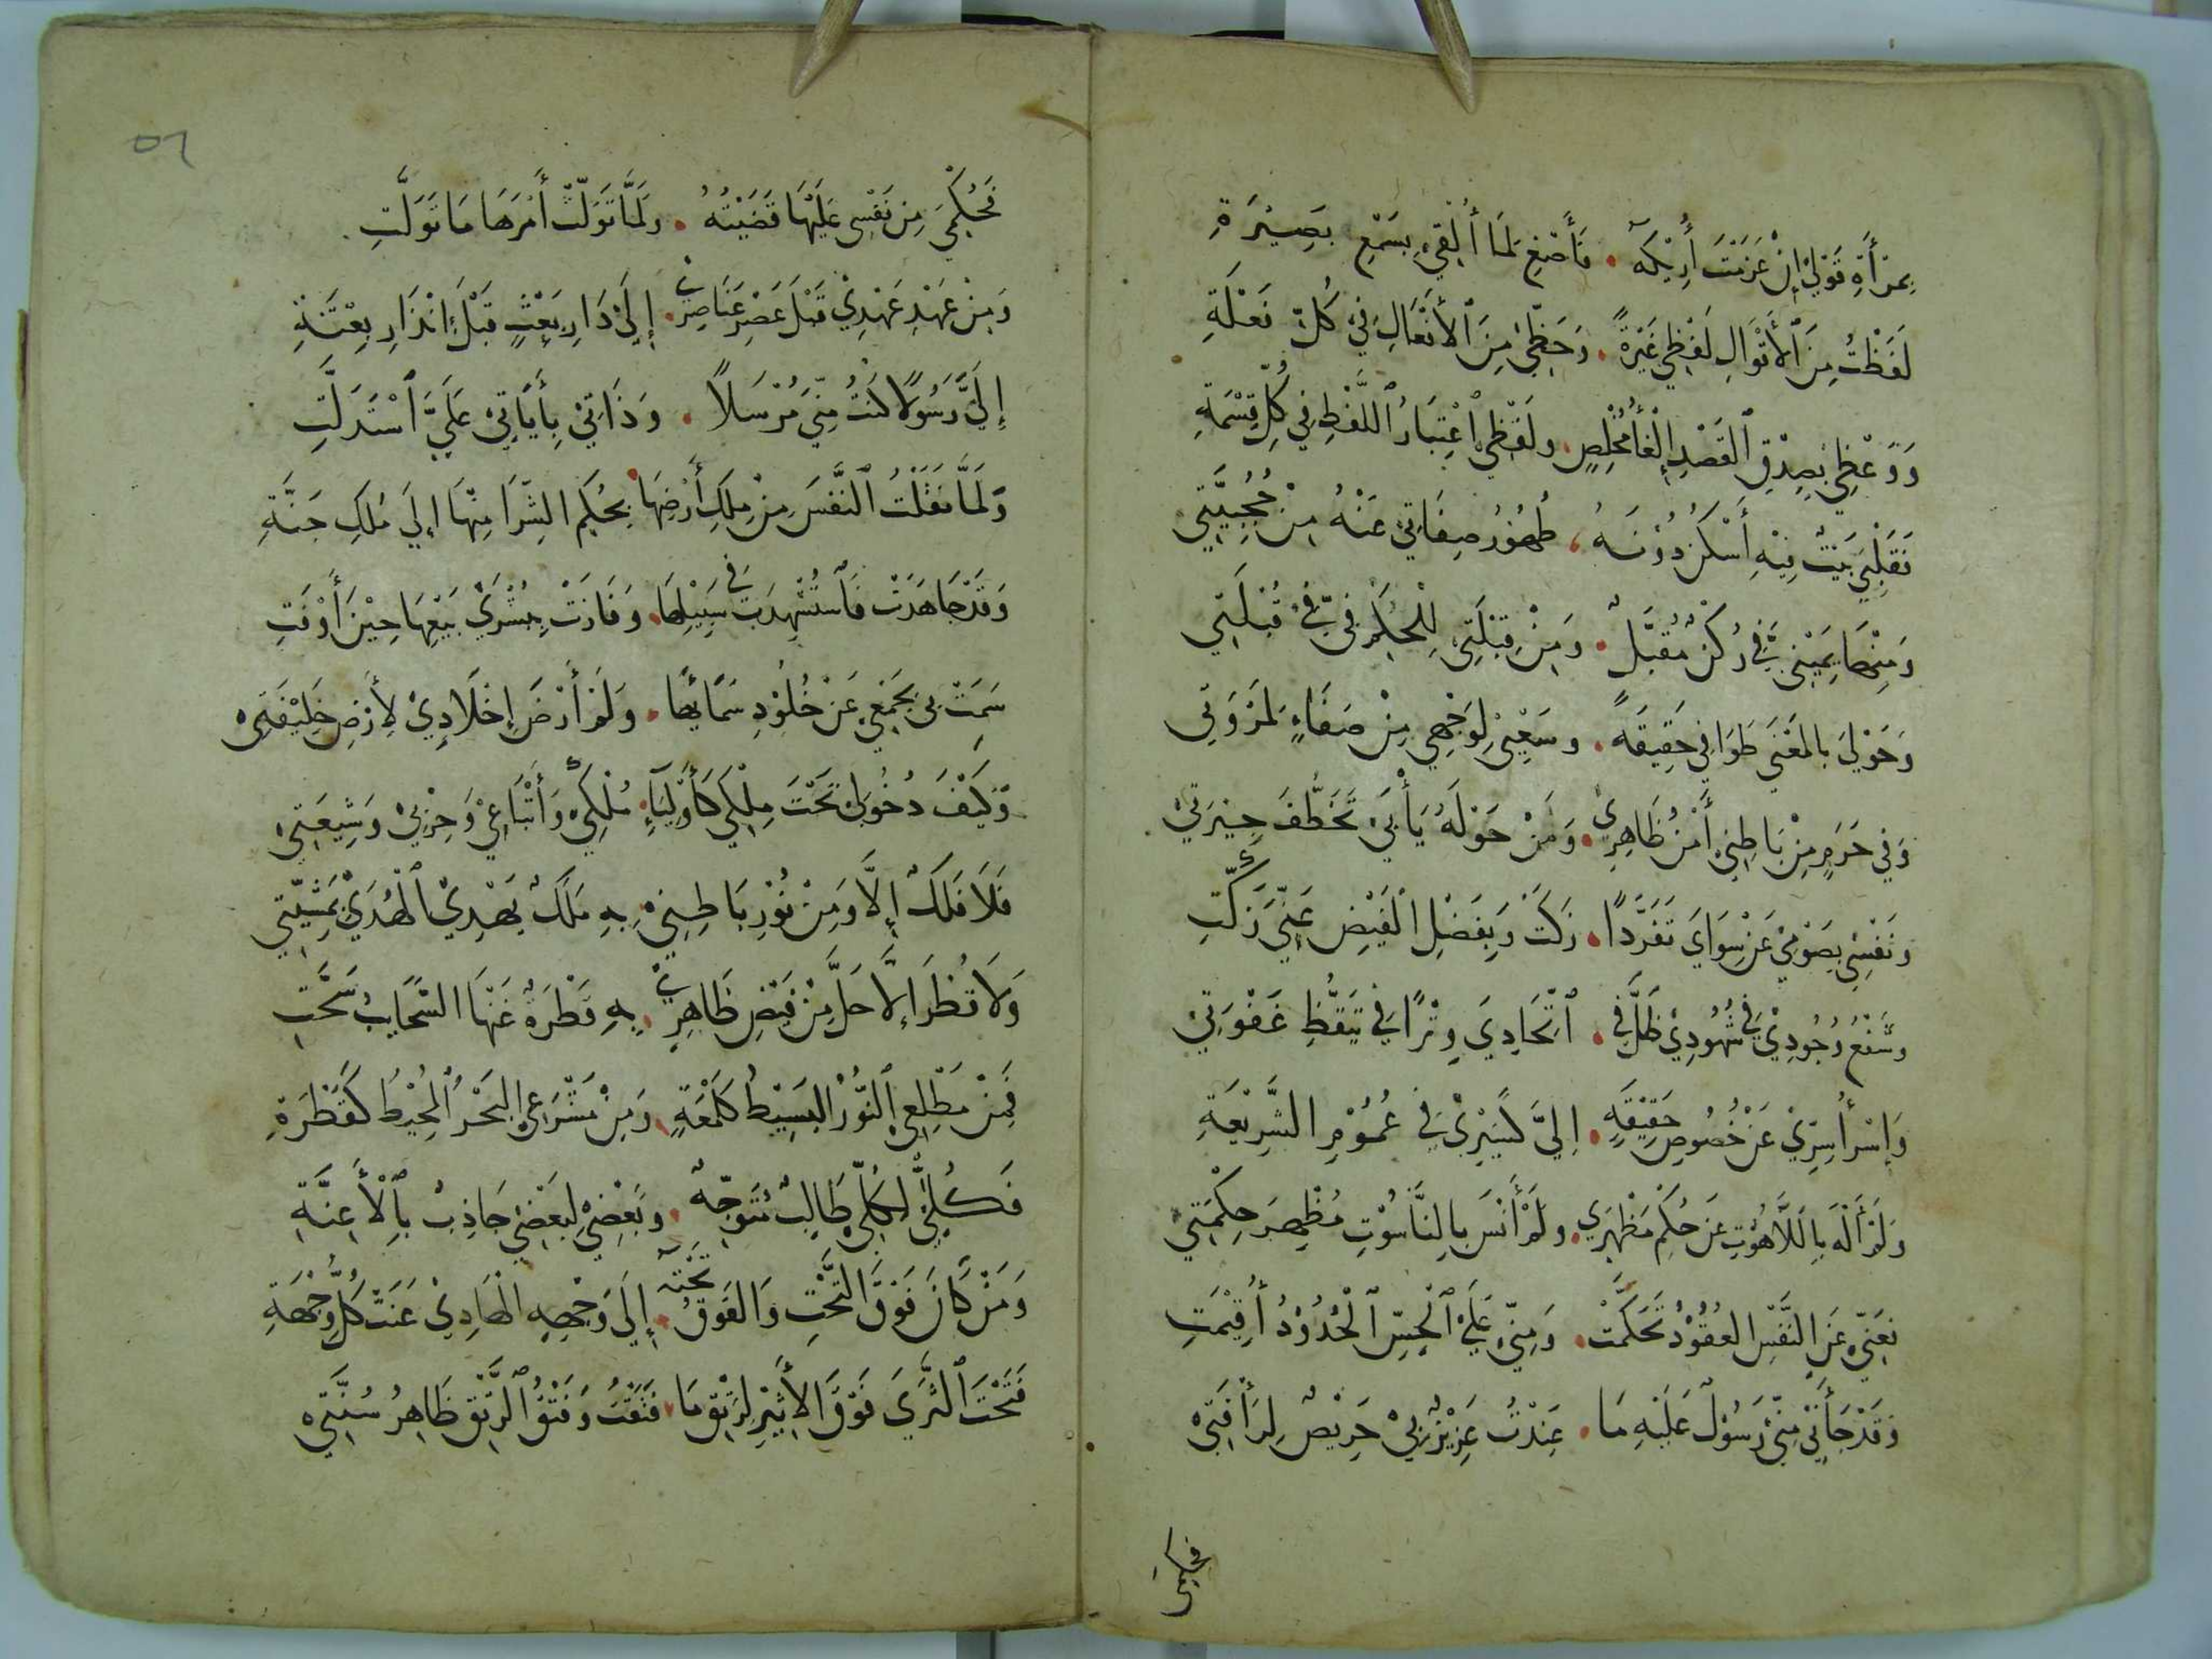 بِمرْأةِ قَوْلِي إِنْ عَزَمْتَ أُرِيْكَهُ . فَأَصْغِ لِمَا أُلْقِي بِسَمْعِ بَصِيْرَةِ
لَفَظْتُ مِنَ ٱلأَقْوَالِ لَفْظِي غَيْرَةً . وَحَظِّي مِنَ ٱلأَفْعَالِ فِي كُلِّ فَعْلَةِ
وَوَعْظِي بِصِدْقِ ٱلقَصْدِ إِلْغَأُ مُخْلِصٍ . ولَفْظِي ٱعْتِبَارُ ٱللَّفْظِ فِي كُلِّ قِسْمَةِ
فَقَلْبِيَ بَيْتٌ فِيْهِ أَسْكُنُ دُوْنَهُ ، ظُهُوْرُ صِفَاتِي عَنْهُ مِنْ حُجُبِيَّتِي
وَمِنْهَا يَمِيْنِي فِيَّ رُكْنٌ مُقَبَّلٌ . وَمِنْ قِبْلَتِي لِلْحُكْمِ فِيَّ فِي قُبْلَتِي
وَحَوْلِيَ بِالمَعْنَى طَوَافِي حَقِيقَةً . وسَعْيِي لِوَجْهِي مِنْ صَفَاءٍ لمَرْوَتِي
وَفِي حَرَمٍ مِنْ بَاطِنِي أَمْنُ ظَاهِرِي . وَمَنْ حَوْلَهُ يَأْبَى تَخَطُّفَ جِيْرَتِي
وَنَفْسِي بِصَوْمِي عَنْ سِوَايَ تَفَرُّدًا . زَكَتْ وَبِفَضْلِ الْفَيْضِ عَنِّيَ زَكَّتِ
وشَفْعُ وُجُودِيَ فِي شُهُودِيْ ظَلَّ فِي . ٱتِّحَادِيَ وِتْرًا فِي تَيَقُّظِ غَفْوَتِيْ
وَإِسْرأُ سِرِّي عَنْ خُصُوصِ حَقِيْقَةٍ . إِليَّ كَسَيْرِيَ فِي عُمُوْمِ الشَّرِيْعَةِ
وَلَمْ أَلْهَ بِاللَّاهُوْتِ عَنْ حُكْمِ مَظْهَرِي . ولَمْ أَنْسَ بِالنَّاسُوْتِ مُظْهِرَ حِكْمَتِي
فعَنِّي عَنِ النَّفْسِ العُقُوْدُ تَحَكَّمَتْ . وَمِنِّي عَلَيْ ٱلْحِسِّ ٱلْحُدُوْدُ أُقِيْمَتِ
وَقَدْ جَأَنِي مِنِّي رَسُوْلٌ عَلَيْهِ مَا . عَنِتُّ عَزِيْزٌ بِيْ حَرِيْصٌ لِرَأْفَتِي
فحكمي
٥٦
فَحُكْمِيَ مِنْ نَفْسِي عَلَيْهَا قَضَيْتُهُ . ولَمَّا تَوَلَّتْ أَمْرَهَا مَا تَوَلَّتِ .
وَمِنْ عَهْدِ عَهْدِيْ قَبْلَ عَصْرِ عَنَاصِرِي . إِلَيْ دَارِ بَعْثٍ قَبْلَ إِنْذَارِ بِعْثَةِ
إِلَيَّ رَسُولًا كُنْتُ مِنِّي مُرْسَلًا . وَذَاتِيْ بِأَيَاتِيْ عَلَيَّ ٱسْتَدَلَّتِ
وَلَمَّا نَقَلْتُ ٱلنَّفْسَ مِنْ مِلكِ أَرْضِهَا . بِحُكْمِ الشِّرَا مِنْهَا إِلَي مُلكِ جَنَّةِ
وَقَدْ جَاهَدَتْ فَٱسْتُشْهِدَتْ فِي سَبِيْلِهَا . وَفَازَتْ بِبُشْرَيْ بَيْعِهَا حِيْنَ أَوْفَتِ
سَمَتْ بِي بِجَمْعِي عَنْ خُلُوْدِ سَمَائِهَا . وَلَمْ أَرْضَ إِخْلَادِيْ لِأَرْضِ خَلِيْفَتِيْ
وَكَيْفَ دُخُوْلِيْ تَحْتَ مِلْكِي كَأَوْلِيَآءِ . مُلْكِيْ وَأَتْبَاعِيْ وَحِزْبِيْ وَشِيعَتِيْ
فَلَا فَلَكٌ إِلَّا وَمِنْ نُوْرِ بَاطِنِيْ . بِهِ مَلَكٌ يَهْدِيْ ٱلْهُدَيْ بِمَشِيَّتِي
وَلَا قُطْرَ إِلَّا حَلَّ مِنْ فَيْضِ ظَاهِرِيْ . بِهِ قَطْرَةٌ عَنْهَا السَّحَايبُ سَحَّتِ
فَمِنْ مَطْلَعِي ٱلنُّوْرُ البَسِيْطُ كَلَمْعَةٍ . وَمِنْ مَشْرَعِي البَحْرُ ٱلمُحِيْطُ كَقَطْرَةِ
فَكُلِّيْ لِكُلِّي طَالِبٌ مُتَوَجِّهٌ . وبَعْضِيْ لِبَعْضِيْ جَاذِبٌ بِٱلْأَعِنَّةِ
وَمَنْ كَانَ فَوْقَ التَّحْتِ وَالفَوْقُ تَحْتَهُ . إِلَى وَجْهِهِ الْهَادِيْ عَنَتْ كُلُّ وُجْهَةِ
فَتَحْتَ ٱلثَّرَيَ فَوْقَ الأَثِيْرِ لِرَتْقِ مَا . فَتَقْتُ وَفَتْقُ ٱلرَّتْقِ ظَاهِرُ سُنَّتِيْ